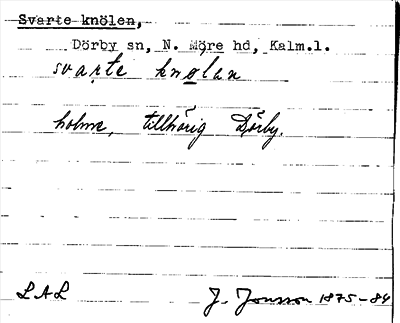 Svarte knölen,
Dörby sn, N. Möre hd, Kalm.l.
svarte knølen
holme, tillhörig Dörby.
LAL J. Jonsson 1875-84